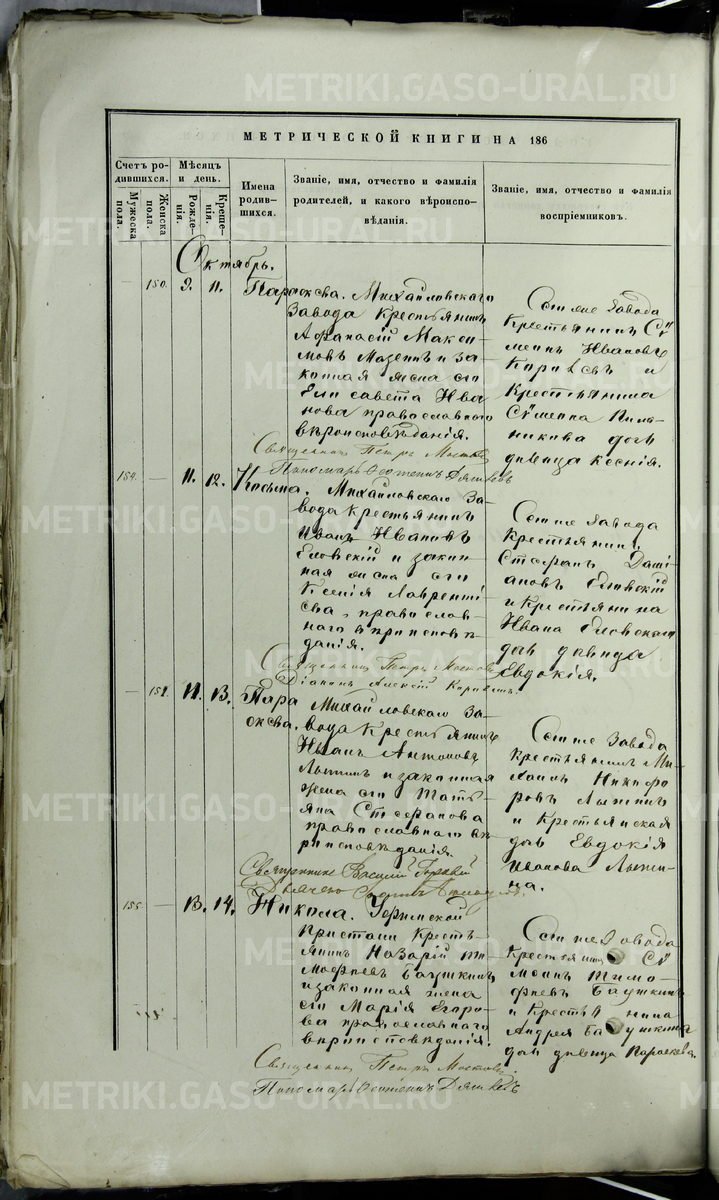 МЕТРИЧЕСКОЙ КНИГИ НА 186
Счетъ ро-
дившихся.
Мѣсяцъ
и день.
Имена
родив-
шихся.
Званіе, имя, отчество и фамилія
родителей, и какого вѣроиспо-
вѣданія.
Званіе, имя, отчество и фамилія
воспріемниковъ.
Мужеска
пола.
Женска
пола.
Рожде-
нія.
Креще-
нія.
Октябрь.
— 150. 9. 11. Параскева. Михайловскаго
Завода Крестьянинъ
Афанасій Макси-
мовъ Мазеинъ и За
конная жена его
Елисавета Ива
нова православнаго
вѣроисповѣданія.
Тотже Завода
Крестьянинъ Се
менъ Ивановъ
и
Крестьянина
дочь
дѣвица Ксенія.
Священникъ Петръ
Пономарь
154. — 11. 12. Косьма. Михайловскаго За-
вода Крестьянинъ
Иванъ Ивановъ
Еловскій и закон
ная жена его
Ксенія Лавренті
ева, православ-
наго вѣроисповѣ
данія.
Тотже Завода
Крестьянинъ
Стефанъ Даміановъ
Еловскій
и Крестьянина
Ивана Еловскаго
дочь дѣвица
Евдокія.
Священникъ Петръ
Діаконъ Алексій
— 151. 11. 13. Пара
скева.
Михайловскаго За-
вода Крестьянинъ
Иванъ Антоновъ
и законная
жена его Тать-
яна Стефанова
православнаго вѣ
роисповѣданія.
Тотже Завода
Крестьянинъ Ми
хаилъ Никифо
ровъ
и Крестьянская
дочь Евдокія
Иванова
Священникъ Василій
155. — 13. 14. Никола.
Пристани Кресть-
янинъ Назарій Ти
мофеевъ Баушкинъ
и законная жена
его Марія Егоро
ва православнаго
вѣроисповѣданія.
Тотже Завода
Крестьянинъ Се
менъ Тимо
феевъ Баушкинъ
и Крестьянина
Андрея Баушкина
дочь дѣвица Параскева
Священникъ Петръ
Пономарь
METRIKI.GASO-URAL.RU